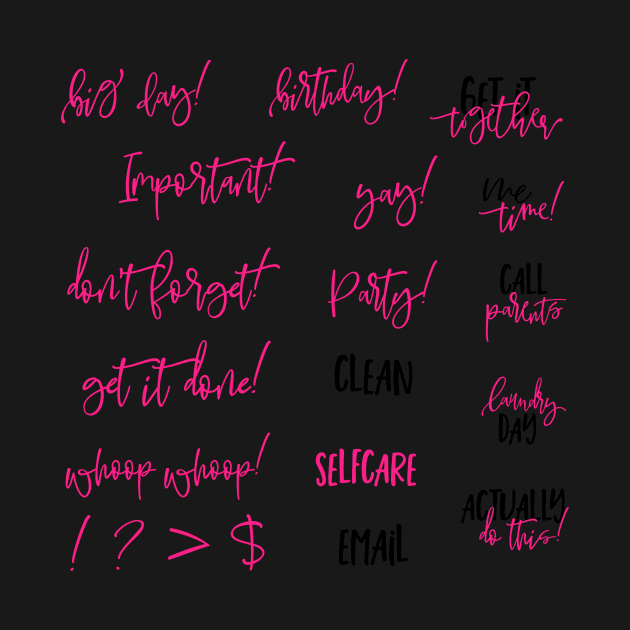 big day!
birthday!
GET iT
together
Important!
yay!
me
time!
don't forget!
Party!
CALL
parents
get it done!
CLEAN
laundry
DAY
whoop whoop!
SELFCARE
ACTUALLY
do this!
! ? > $
EMAiL